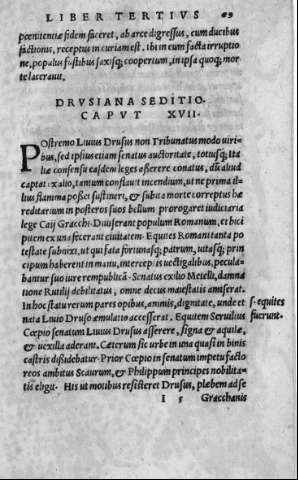 LIBER TERTIVS 69
pœnitentiæ fidem faceret, ab arce digressus, cum ducibus
factionis, receptus in curiam est. Ibi in eum facta irruptio
ne, populus fustibus saxisq; coopertum, in ipsa quoq; mor
te lacerauit.
DRVSIANA SEDITIO.
CAPVT XVII.
POstremo Liuius Drusus non Tribunatus modo uiri-
bus, sed ipsius etiam senatus auctoritate, totiusq; Ita
liæ consensu easdem leges asserere conatus, dũ aliud
captat ex alio, tantum conflauit incendium, ut ne prima il-
lius flamma posset sustineri, & subita morte correptus hæ
reditarium in posteros suos bellum prorogaret iudiciaria
lege Caij Gracchi. Diuiserant populum Romanum, et bici
pitem ex una fecerant ciuitatem. Equites Romani tanta po
testate subnixi, ut qui fata fortunasq; patrum, uitasq; prin
cipum haberent in manu, interceptis uectigalibus, pecula-
bantur suo iure rempublicã. Senatus exilio Metelli, damna
tione Rutilij debilitatus, omne decus maiestatis amiserat.
In hoc statu rerum pares opibus, animis, dignitate, unde et s. equites
nata Liuio Druso æmulatio accesserat. Equitem Seruilius fuerunt.
Cœpio senatum Liuius Drusus asserere, signa & aquilæ,
& uexilla aderant. Cæterum sic urbe in una quasi in binis
castris dißidebatur. Prior Cœpio in senatum impetu facto
reos ambitus Scaurum, & Philippum principes nobilita-
tis eligit. His ut motibus resisteret Drusus, plebem ad se
I 5 Gracchanis